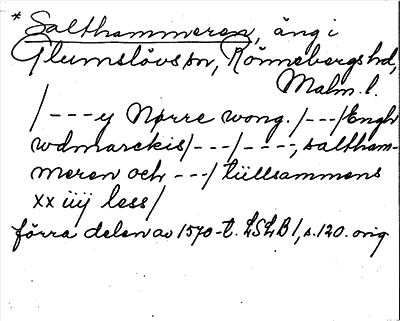 * Salthammeren, äng i
Glumslövs sn, Rönnebergs hd,
Malm. l.
/---y Nørre wong. /---/ Engh
wdmarckis/---/----, saltham-
meren och ---/ tiillsammens
xx iiij less/
förra delen av 1570-t. LSLB 1, s. 120. orig